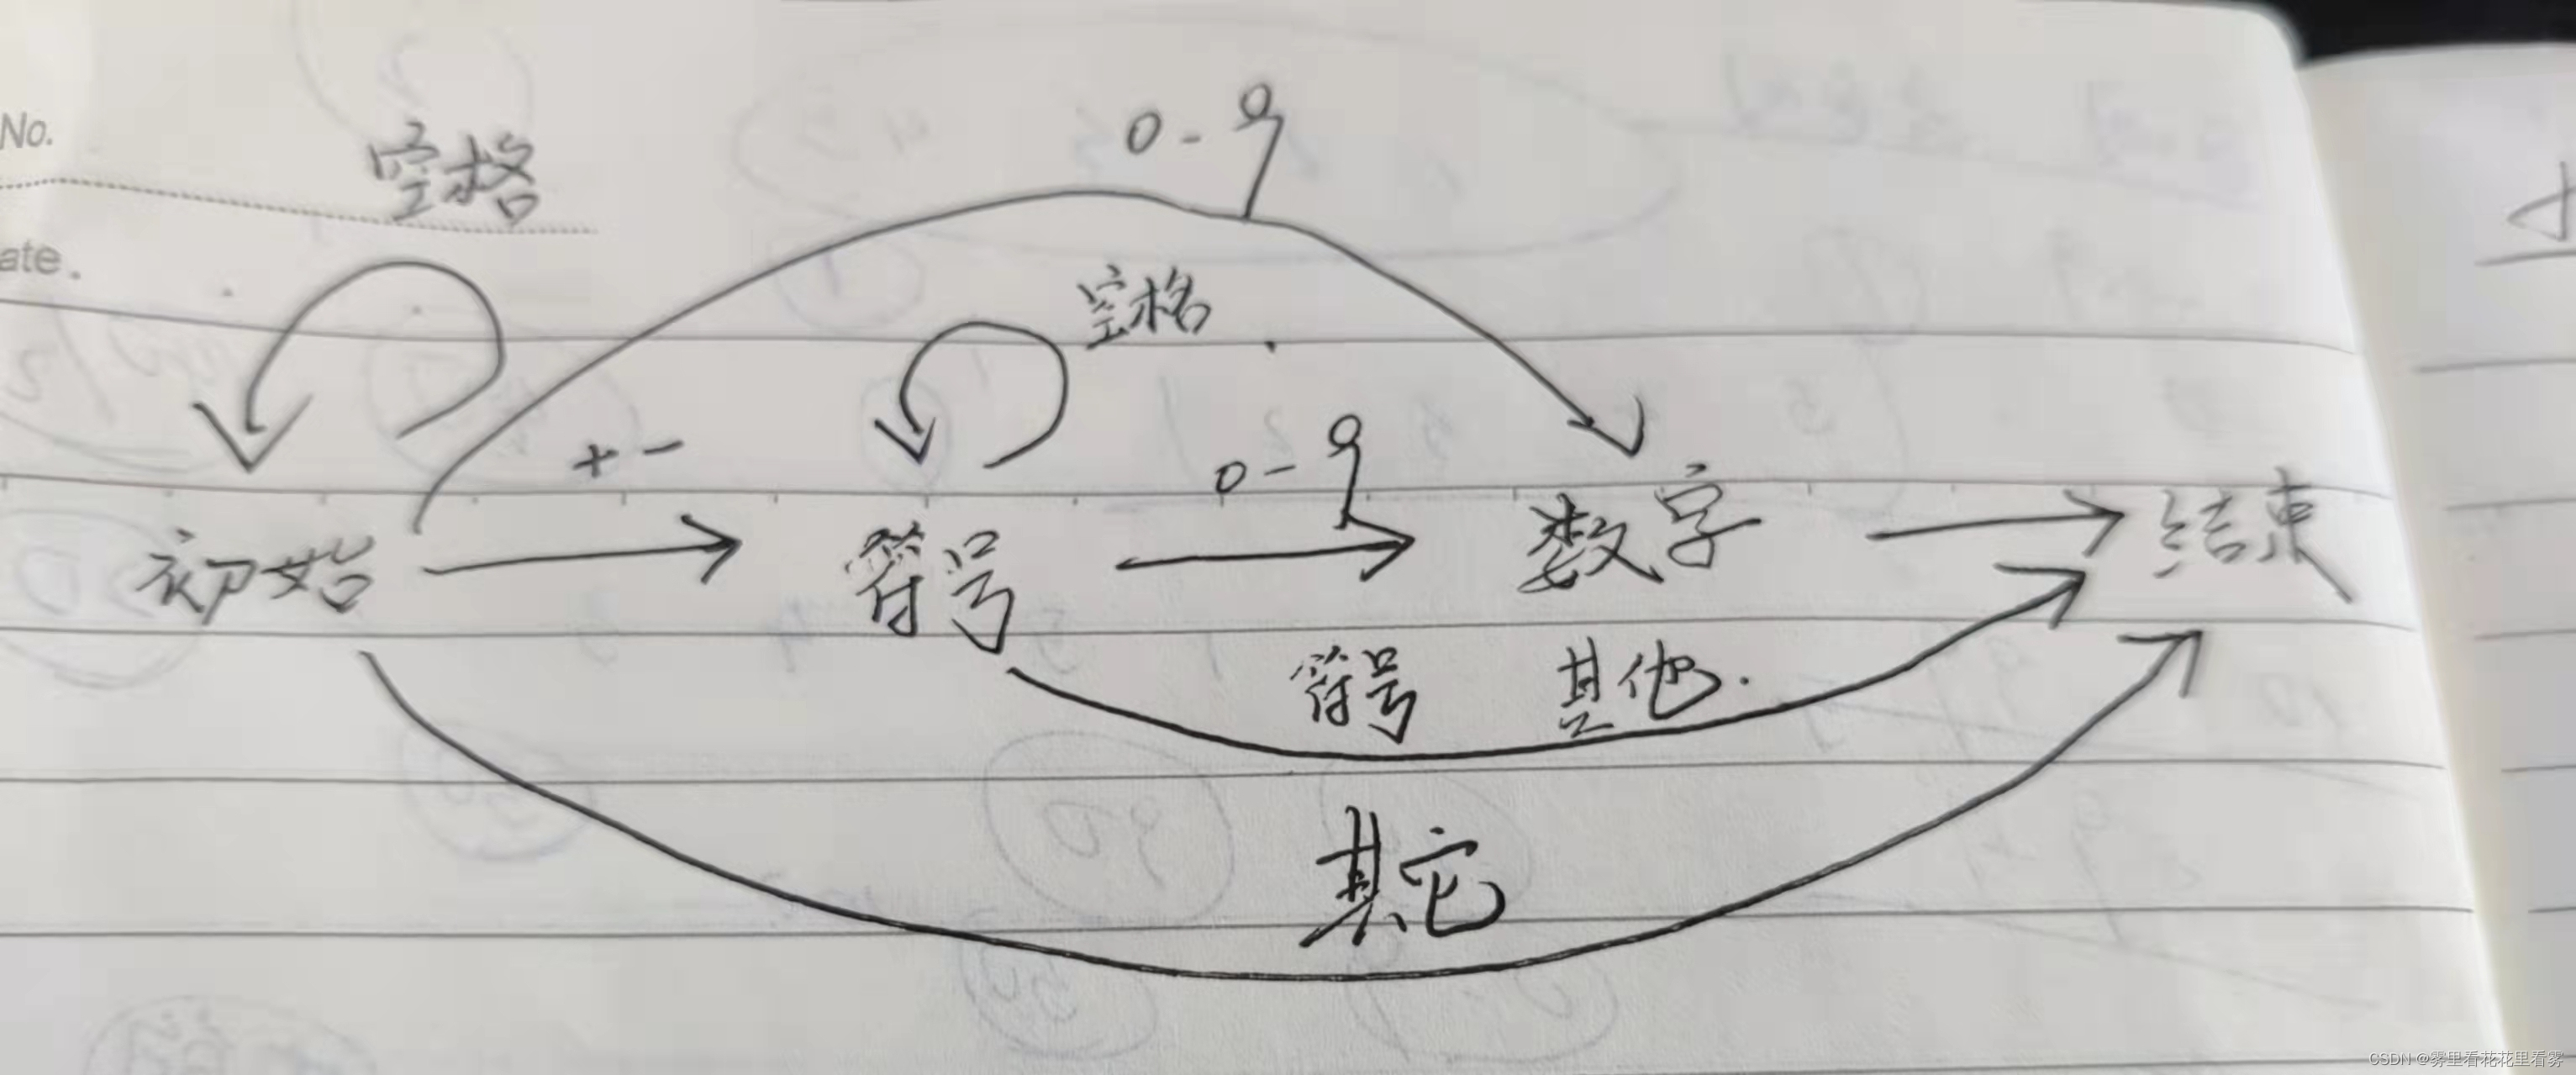 No.
空格
0-9
ate.
空格
+ -
0-9
初始
符号
数字
结束
符号 其他.
其它
CSDN @雾里看花花里看雾